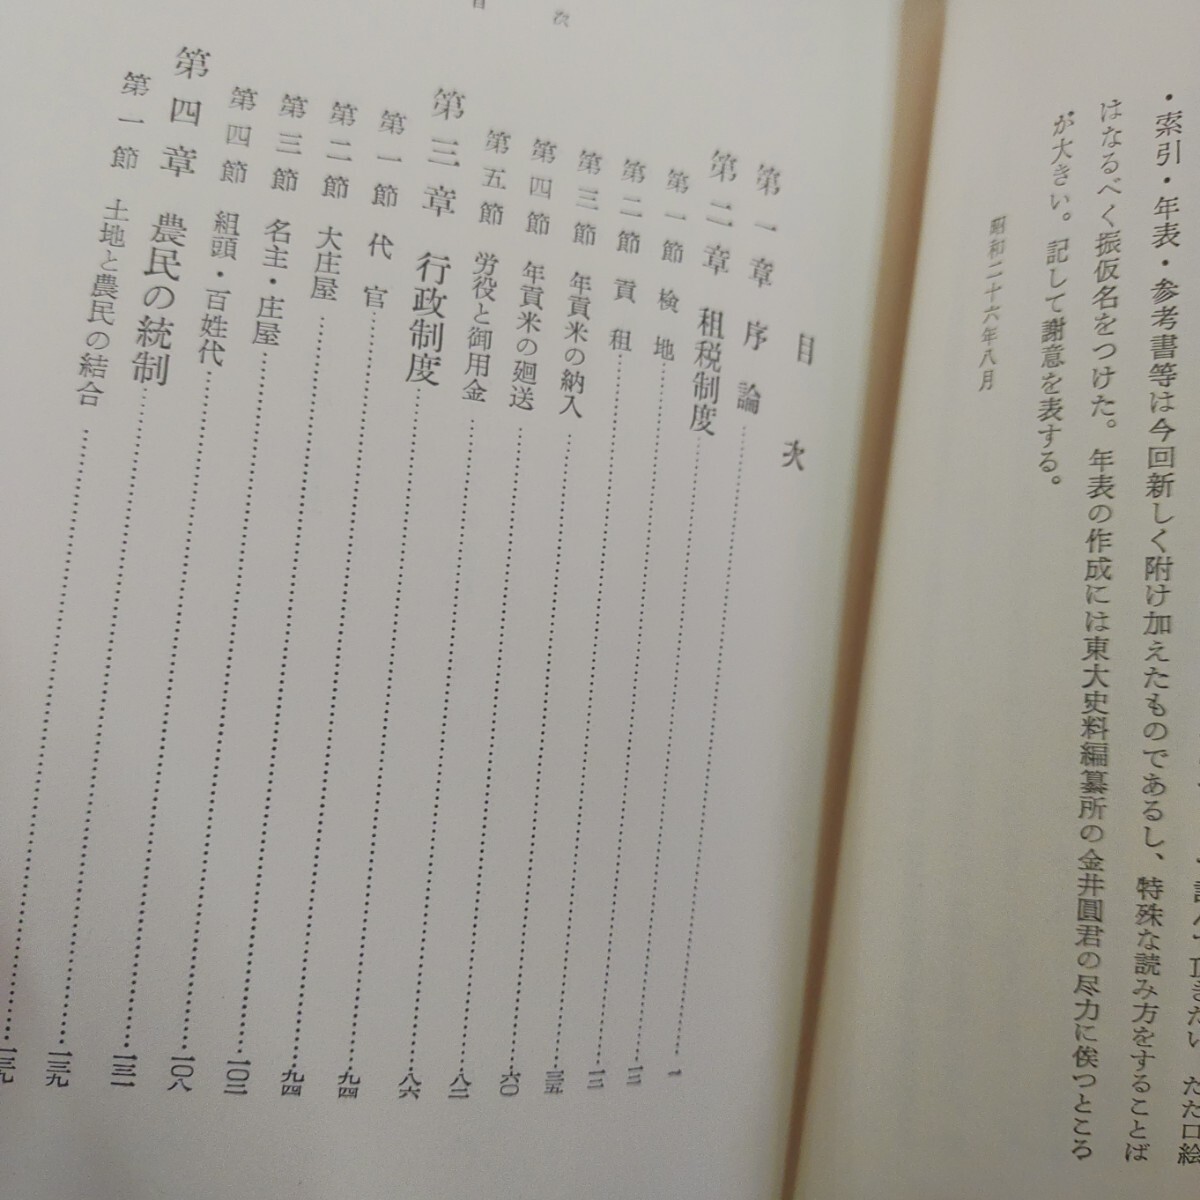 読んで頂きたい。ただ口絵
・索引・年表・参考書等は今回新しく附け加えたものであるし、特殊な読み方をすることば
はなるべく振仮名をつけた。年表の作成には東大史料編纂所の金井圓君の尽力に俟つところ
が大きい。記して謝意を表する。
昭和二十六年八月
目次
目次
第一章 序論……一
第二章 租税制度……一二
第一節 検地……一二
第二節 貢租……三五
第三節 年貢米の納入……六〇
第四節 年貢米の廻送……八二
第五節 労役と御用金……八六
第三章 行政制度……九四
第一節 代官……九四
第二節 大庄屋……一〇二
第三節 名主・庄屋……一〇八
第四節 組頭・百姓代……一三一
第四章 農民の統制……一三九
第一節 土地と農民の結合……一三九